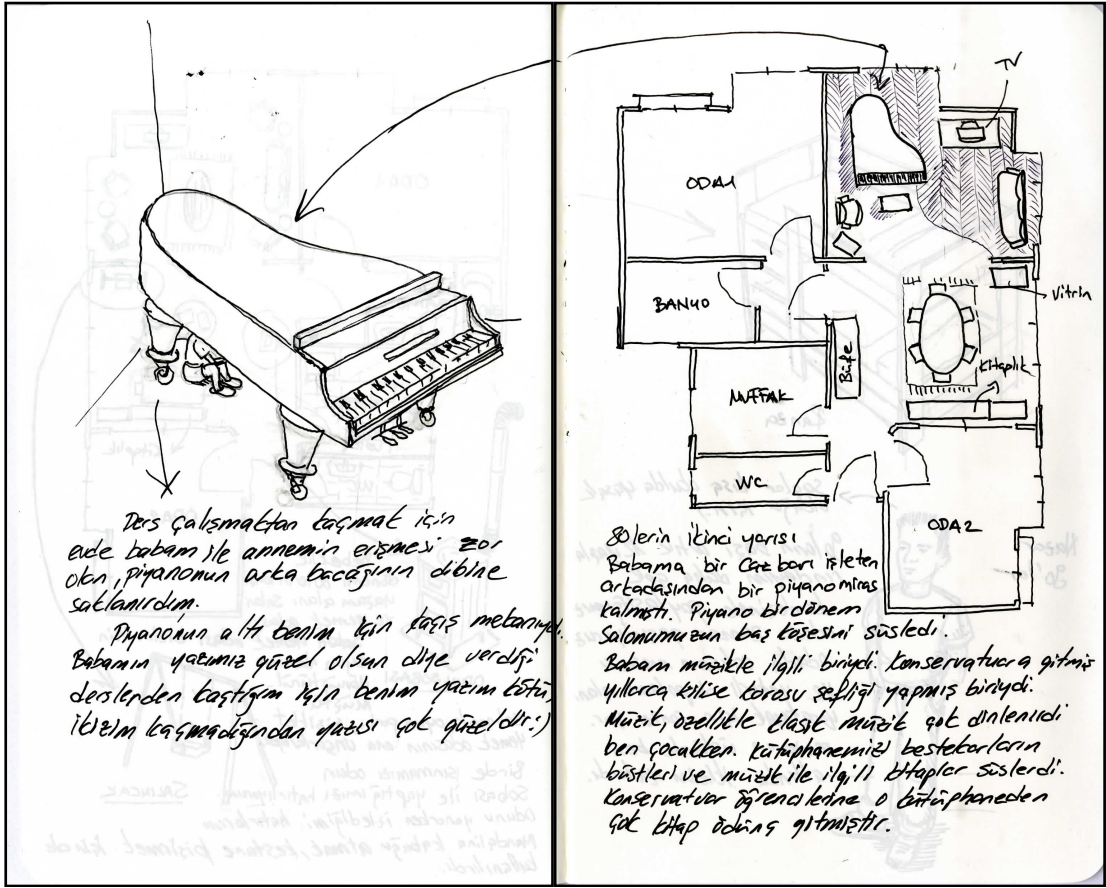 Ders çalışmaktan kaçmak için
evde babam ile annemin erişmesi zor
olan, piyanonun arka bacağının dibine
saklanırdım.
Piyano'nun altı benim için kaçış mekanıydı.
Babamın yazımız güzel olsun diye verdiği
derslerden kaçtığım için benim yazım kötü,
ikizim kaçmadığından yazısı çok güzeldir:)
TV
ODA1
BANYO
Vitrin
Büfe
Kitaplık
MUTFAK
WC
ODA2
80lerin ikinci yarısı
Babama bir Caz barı işleten
arkadaşından bir piyano miras
kalmıştı. Piyano bir dönem
Salonumuzun baş köşesini süsledi.
Babam müzikle ilgili biriydi. Konservatuara gitmiş
yıllarca kilise korosu şefliği yapmış biriydi.
Müzik, özellikle klasik müzik çok dinlenirdi
ben çocukken. Kütüphanemizi bestekarların
büstleri ve müzik ile ilgili kitaplar süslerdi.
Konservatuar öğrencilerine o kütüphaneden
çok kitap ödünç gitmiştir.